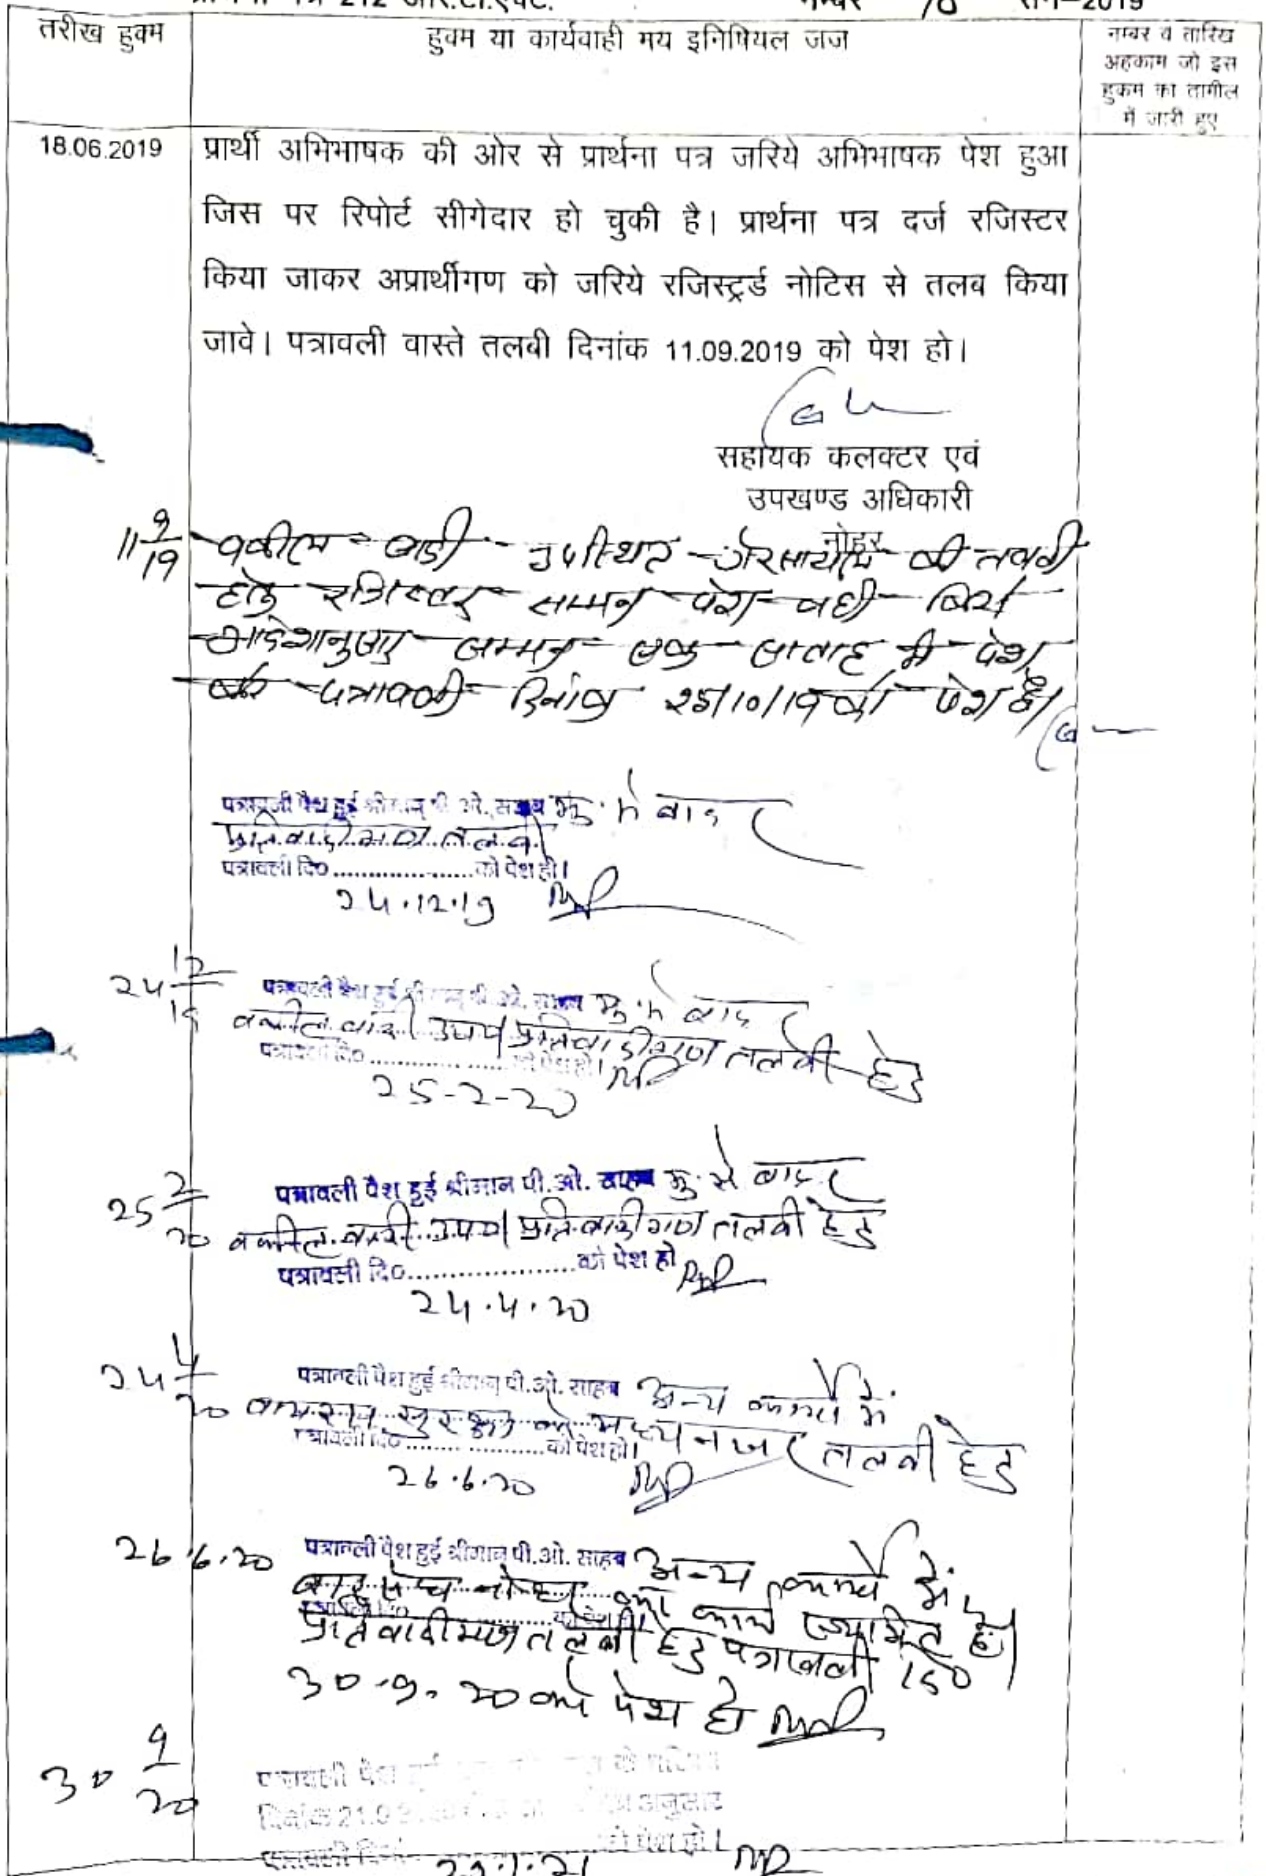 212 आर.टी.एक्ट. नम्बर 70 सन–2019
तरीख हुक्म
हुक्म या कार्यवाही मय इनिषियल जज
नम्बर व तारिख
अहकाम जो इस
हुकम का तामील
में जारी हुए
18.06.2019
प्रार्थी अभिभाषक की ओर से प्रार्थना पत्र जरिये अभिभाषक पेश हुआ
जिस पर रिपोर्ट सीगेदार हो चुकी है। प्रार्थना पत्र दर्ज रजिस्टर
किया जाकर अप्रार्थीगण को जरिये रजिस्ट्रर्ड नोटिस से तलब किया
जावे। पत्रावली वास्ते तलबी दिनांक 11.09.2019 को पेश हो।
सहायक कलक्टर एवं
उपखण्ड अधिकारी
नोहर
11 9/19 वकील वादी उपस्थित की तलबी
हेतु रजिस्टर सम्मन पेश नही किये
आदेशानुसार सम्मन एक सप्ताह में पेश
कर पत्रावली दिनांक 25/10/19 को पेश हो।
पत्रावली पेश हुई श्रीमान पी.ओ. साहब मु. से बाहर
प्रतिवादीगण तलबी
पत्रावली दि०....................को पेश हो।
24.12.19
24 12/19 पत्रावली पेश हुई श्रीमान पी.ओ. साहब मु. से बाहर
वकील वादी उप० प्रतिवादीगण तलबी हेतु
पत्रावली दि०....................को पेश हो।
25-2-20
25 2/20 पत्रावली पेश हुई श्रीमान पी.ओ. साहब मु. से बाहर
वकील वादी उप० प्रतिवादीगण तलबी हेतु
पत्रावली दि०....................को पेश हो
24.4.20
24 4/20 पत्रावली पेश हुई श्रीमान पी.ओ. साहब अन्य कार्य में
को मध्यनजर तलबी हेतु
पत्रावली दि०....................को पेश हो।
26.6.20
26.6.20 पत्रावली पेश हुई श्रीमान पी.ओ. साहब अन्य कार्य में,
बार संघ नोहर का कार्य स्थगित है।
प्रतिवादीगण तलबी हेतु पत्रावली दि०
30.9.20 को पेश हो
30 9/20 पत्रावली पेश हुई
अनुसार
पत्रावली को पेश हो।